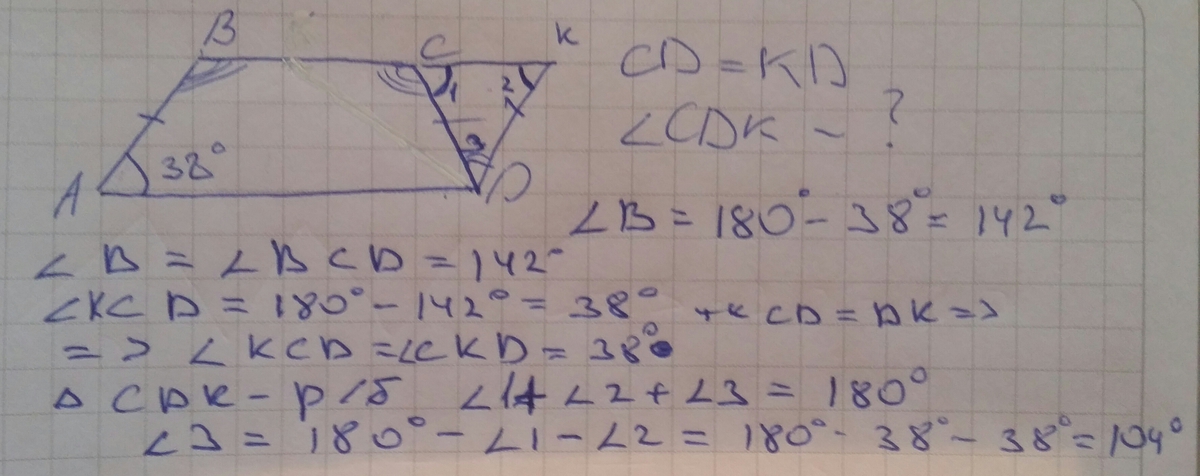 B
C
K
A
38°
D
1
2
3
CD = KD
∠CDK – ?
∠B = 180° – 38° = 142°
∠B = ∠BCD = 142°
∠KCD = 180° – 142° = 38° т.к CD = DK =>
=> ∠KCD = ∠CKD = 38°
△CDK – р/б ∠1+∠2+∠3 = 180°
∠3 = 180° – ∠1 – ∠2 = 180° – 38° – 38° = 104°